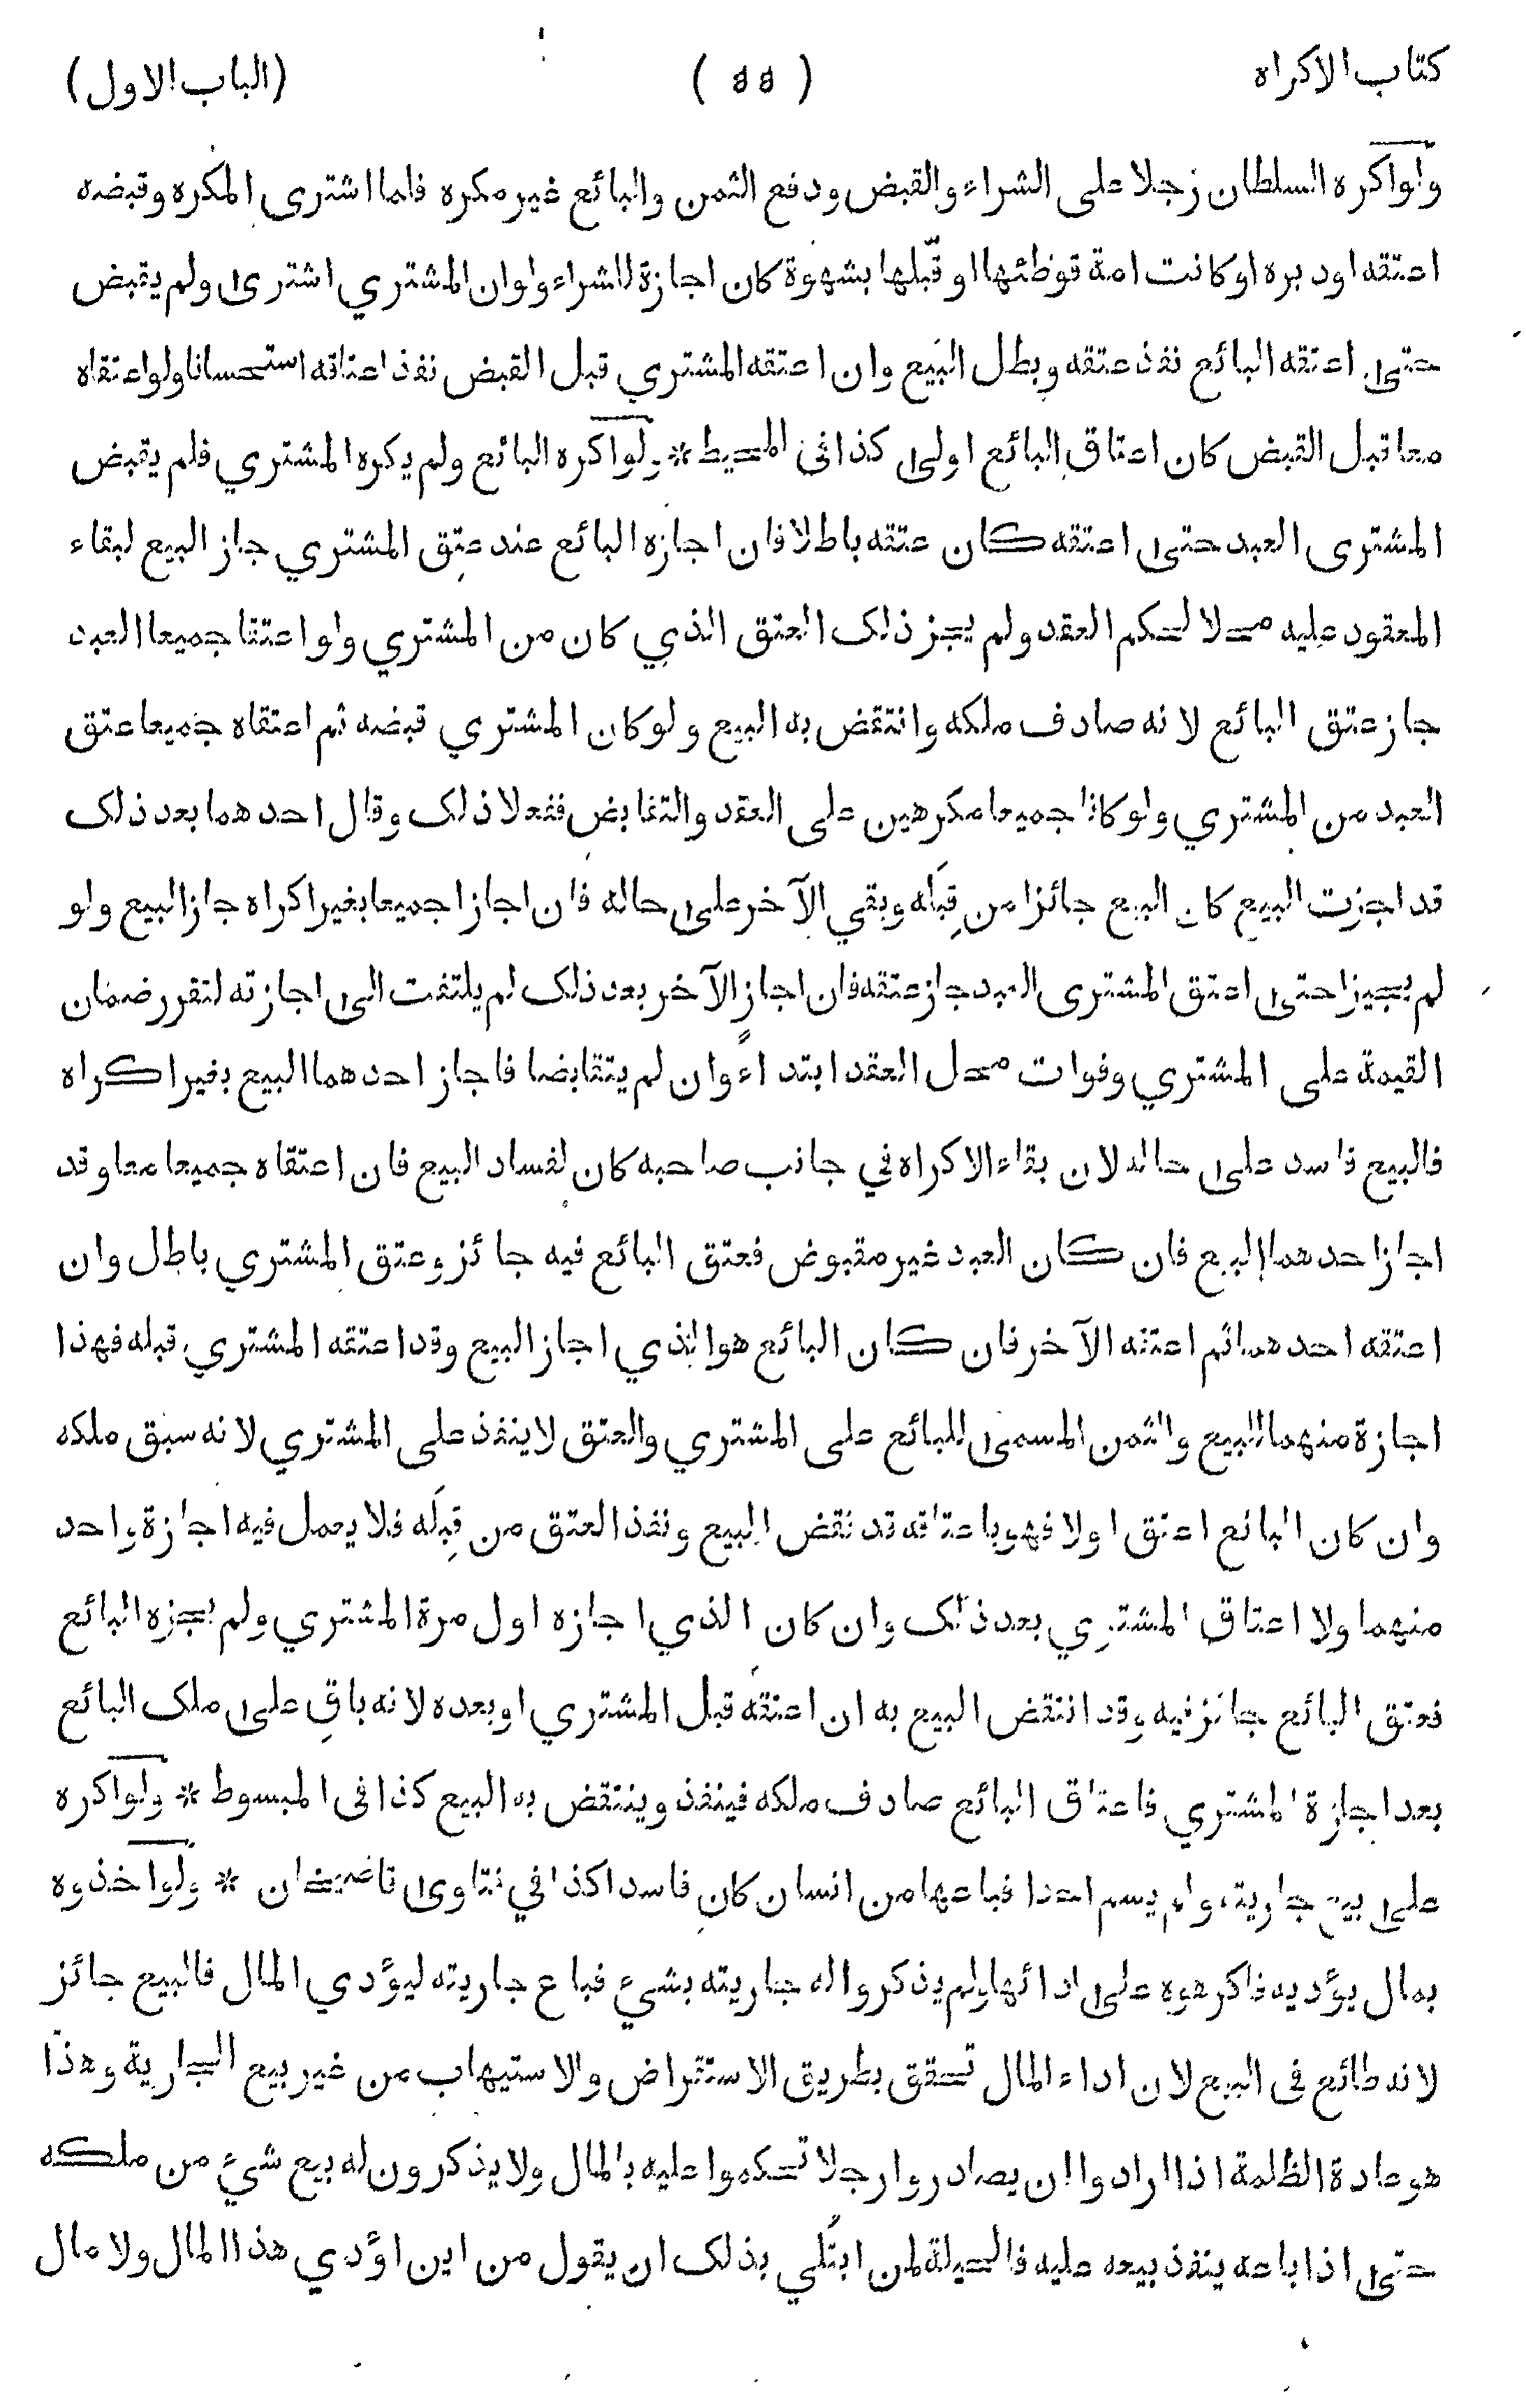 كتاب الاكراه ( ٥٥ ) (الباب الاول)
ولو اكره السلطان رجلا على الشراء والقبض ودفع الثمن والبائع غير مكره فلما اشترى المكره وقبضه
اعتقه او دبره او كانت امة فوطئها او قبّلها بشهوة كان اجازة للشراء ولو ان المشتري اشترى ولم يقبض
حتى اعتقه البائع نفذ عتقه وبطل البيع وان اعتقه المشتري قبل القبض نفذ اعتاقه استحسانا ولو اعتقاه
معا قبل القبض كان اعتاق البائع اولى كذا في المحيط * ولو اكره البائع ولم يكره المشتري فلم يقبض
المشترى العبد حتى اعتقه كان عتقه باطلا فان اجازه البائع عند عتق المشتري جاز البيع لبقاء
المعقود عليه محلا لحكم العقد ولم يجز ذلك العتق الذي كان من المشتري ولو اعتقا جميعا العبد
جاز عتق البائع لانه صادف ملكه وانتقض به البيع ولو كان المشتري قبضه ثم اعتقاه جميعا عتق
العبد من المشتري ولو كانا جميعا مكرهين على العقد والتقابض ففعلا ذلك وقال احدهما بعد ذلك
قد اجزت البيع كان البيع جائزا من قِبَله وبقي الآخر على حاله فان اجازا جميعا بغير اكراه جاز البيع ولو
لم يجيزا حتى اعتق المشترى العبد جاز عتقه فان اجاز الآخر بعد ذلك لم يلتفت الى اجازته لتقرر ضمان
القيمة على المشتري وفوات محل العقد ابتداءً وان لم يتقابضا فاجاز احدهما البيع بغير اكراه
فالبيع فاسد على حاله لان بقاء الاكراه في جانب صاحبه كان لفساد البيع فان اعتقاه جميعا معا وقد
اجاز احدهما البيع فان كان العبد غير مقبوض فعتق البائع فيه جائز وعتق المشتري باطل وان
اعتقه احدهما ثم اعتقه الآخر فان كان البائع هو الذي اجاز البيع وقد اعتقه المشتري قبله فهذا
اجازة منهما للبيع والثمن المسمى للبائع على المشتري والعتق لا ينفذ على المشتري لانه سبق ملكه
وان كان البائع اعتق اولا فهو باعتاقه قد نقض البيع ونفذ العتق من قِبَله فلا يعمل فيه اجازة واحد
منهما ولا اعتاق المشتري بعد ذلك وان كان الذي اجازه اول مرة المشتري ولم يجزه البائع
فعتق البائع جائز فيه وقد انتقض البيع به ان اعتقه قبل المشتري او بعده لانه باقِ على ملك البائع
بعد اجازة المشتري فاعتاق البائع صادف ملكه فينفذ وينتقض به البيع كذا فى المبسوط * ولو اكره
على بيع جارية ولم يسم احدا فباعها من انسان كان فاسدا كذا في فتاوى قاضيخان * ولو اخذوه
بمال يؤديه فاكرهوه على ادائها ولم يذكروا له جاريته بشيء فباع جاريته ليؤدي المال فالبيع جائز
لانه طائع فى البيع لان اداء المال تحقق بطريق الاستقراض والاستيهاب من غير بيع الجارية وهذا
هو عادة الظلمة اذا ارادوا ان يصادروا رجلا تحكموا عليه بالمال ولا يذكرون له بيع شيء من ملكه
حتى اذا باعه ينفذ بيعه عليه فالحيلة لمن ابتُلي بذلك ان يقول من اين اؤدي هذا المال ولا مال